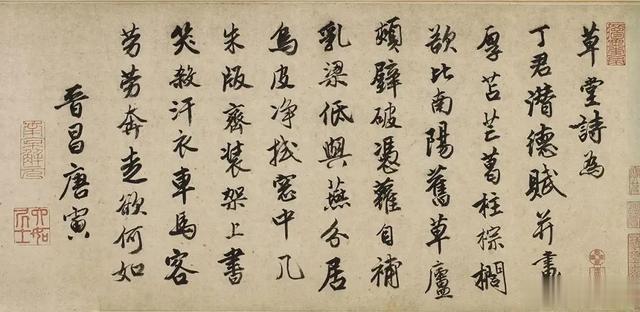 草堂詩為
丁君潛德賦并畫
厚苫芒葛柱棕櫚
欲比南陽舊草廬
頹壁破憑蘿自補
乳梁低與燕分居
烏皮净拭窓中几
朱版齊裝架上書
笑殺汗衣車馬客
勞勞奔走欲何如
晉昌唐寅
南京解元
六如居士